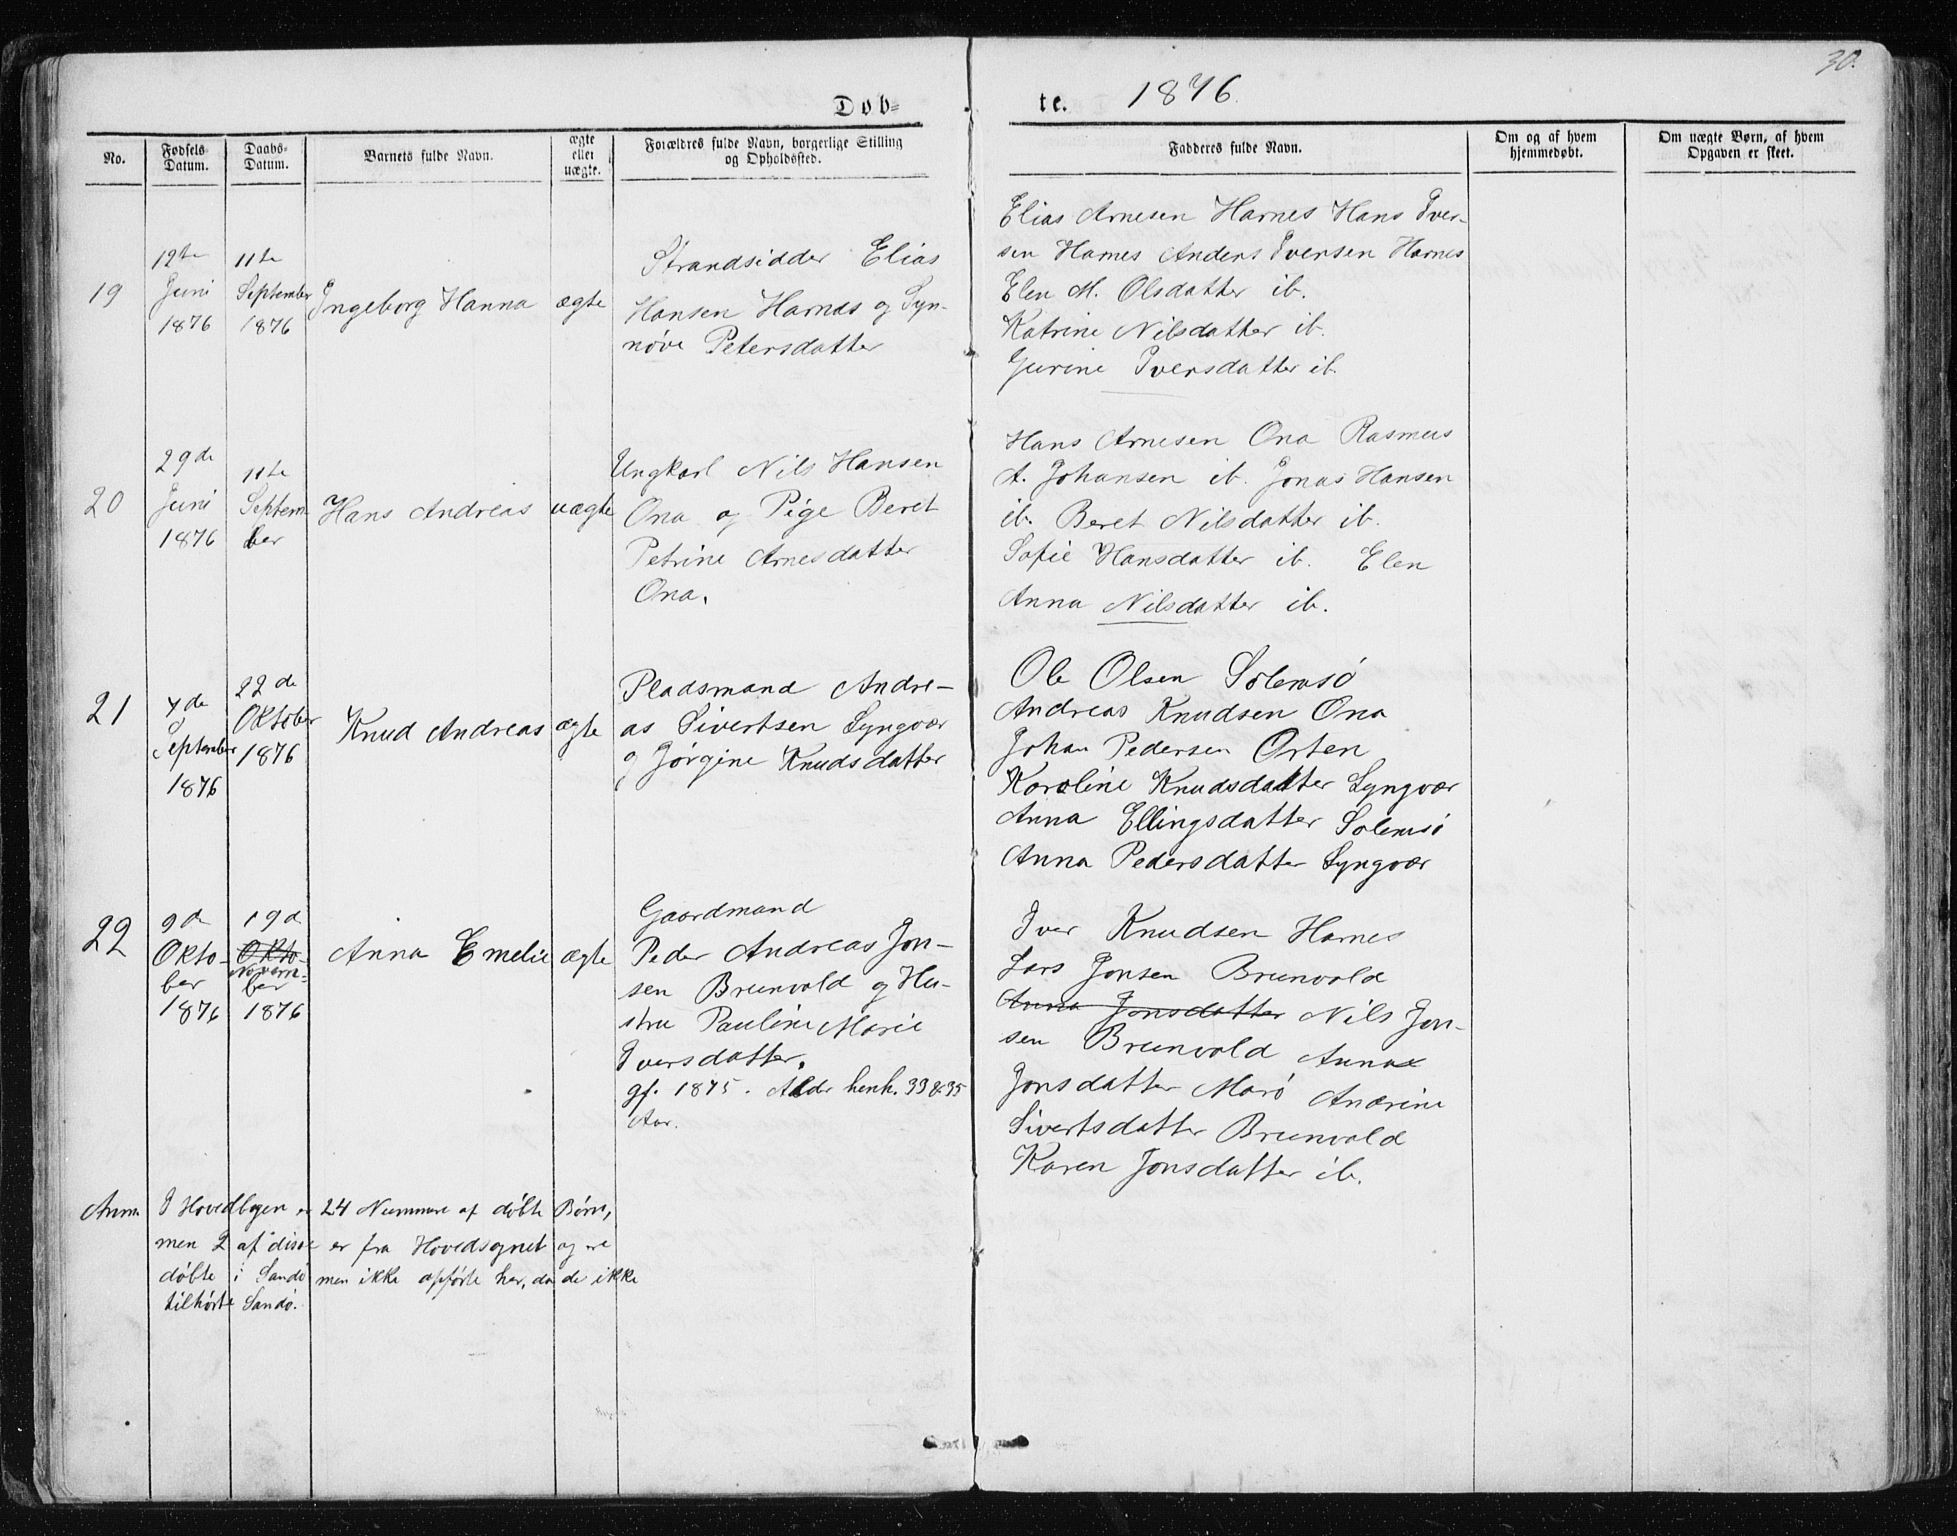 30.
Døb= te. 1876.
No.
Fødsels Datum.
Daabs-Datum.
Barnets fulde Navn.
ægte eller uægte.
Forældres fulde Navn, borgerlige Stilling
og Opholdssted.
Fadderes fulde Navn.
Om og af hvem
hjemmedøbt.
Om uægte Børn, af hvem
Opgaven er skeet.
19
12te
Juni
1876
11te
September
1876
Ingeborg Hanna
ægte
Strandsidder Elias
Hansen Harnæs og Syn-
nøve Petersdatter
Elias Arnesen Harnes Hans Iver-
sen Harnes Anders Iversen Harnes
Elen M. Olsdatter ib.
Katrine Nilsdatter ib.
Gurine Iversdatter ib.
20
29de
Juni
1876
11te
Septem
ber
Hans Andreas
uægte
Ungkarl Nils Hansen
Ona og Pige Beret
Petrine Arnesdatter
Ona.
Hans Arnesen Ona Rasmus
A. Johansen ib. Jonas Hansen
ib. Beret Nilsdatter ib.
Sofie Hansdatter ib. Elen
Anna Nilsdatter ib.
21
7de
September
1876
22de
Oktober
1876
Knud Andreas
ægte
Pladsmand Andre-
as Sivertsen Lyngvær
og Jørgine Knudsdatter
Ole Olsen Solemsö
Andreas Knudsen Ona
Johan Pedersen Orten
Karoline Knudsdatter Lyngvær
Anna Ellingsdatter Solemsö
Anna Pedersdatter Lyngvær
22
9d
Okto-
ber
1876
19d
Okto-
Novem-
ber
1876
Anna Emelie
ægte
Gaardmand
Peder Andreas Jon-
sen Brunvold og Hu-
stru Pauline Marie
Iversdatter.
gf. 1875. Alder henh. 33 & 35
Aar.
Iver Knudsen Harnes
Lars Jonsen Brunvold
Anna Jonsdatter Nils Jon-
sen Brunvold Anna
Jonsdatter Marö Anderine
Sivertsdatter Brunvold
Karen Jonsdatter ib.
Anm I Hovedbogen er 24 Nummere af døbte Børn,
men 2 af disse er fra Hovedsognet og ere
døbte i Sandö men ikke opførte her, da de ikke
tilhørte Sandö.